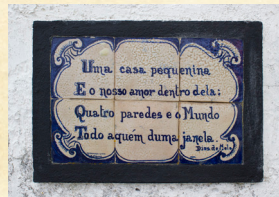 Uma casa pequenina
E o nosso amor dentro dela:
Quatro paredes e o Mundo
Todo aquém duma janela.